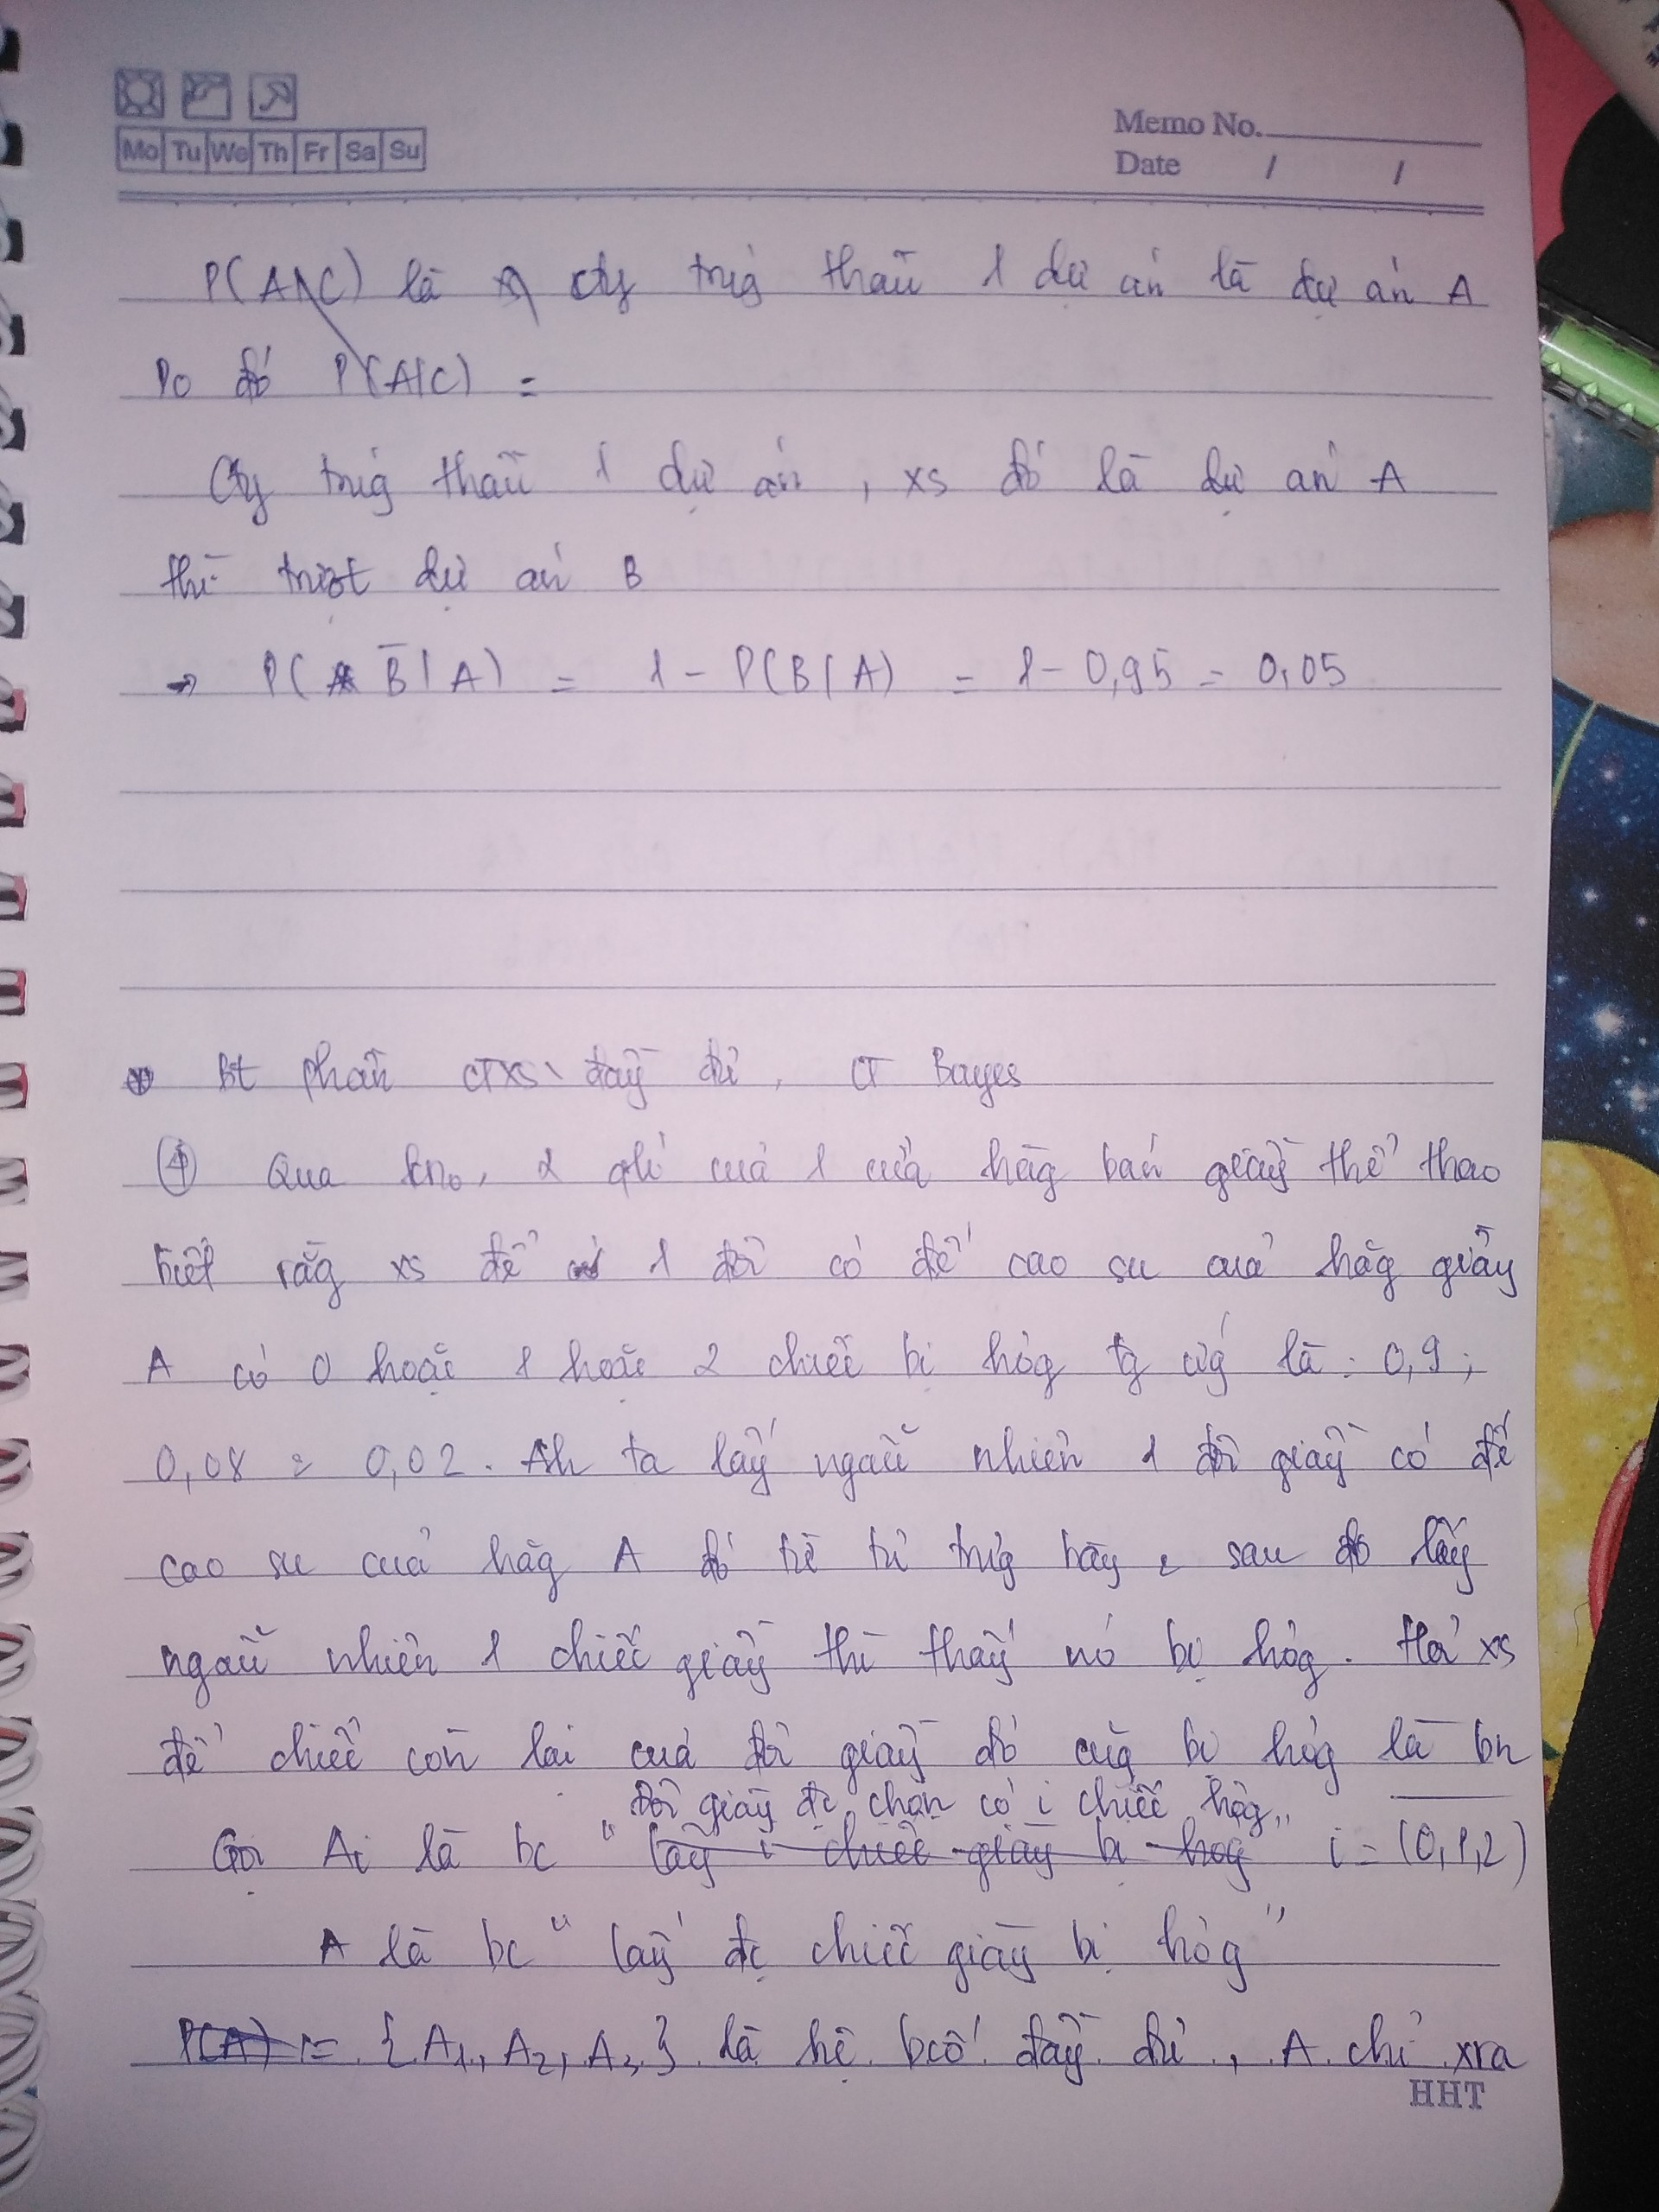 Mo Tu We Th Fr Sa Su
Memo No.
Date / /
P(A\C) là cty trúg thầu 1 dự án là dự án A
Do đó P(A|C) =
Cty trúg thầu 1 dự án, xs đó là dự án A
thì trượt dự án B
→ P(B̄|A) = 1 - P(B|A) = 1 - 0,95 = 0,05
Bt phần CTXS đầy đủ, CT Bayes
④ Qua kno, 2 qlí của 1 cửa hàg bán giầy thể thao
biết rằg xs để 1 đôi có đế cao su của hãg giầy
A có 0 hoặc 1 hoặc 2 chiếc bị hỏg tg ứg là: 0,9;
0,08 2 0,02. Ah ta lấy ngẫu nhiên 1 đôi giầy có đế
cao su của hãg A đó từ tủ trưg bày 2 sau đó lấy
ngẫu nhiên 1 chiếc giầy thì thấy nó bị hỏg. Hỏi xs
để chiếc còn lại của đôi giầy đó cũg bị hỏg là bn
đôi giầy đc chọn có i chiếc hỏg"
Gọi Ai là bc " lấy i chiếc giầy bị hỏg i = (0,1,2)
A là bc "lấy đc chiếc giầy bị hỏg"
P(A) = {A1, A2, A3} là hệ bcố đầy đủ, A chỉ xra
HHT